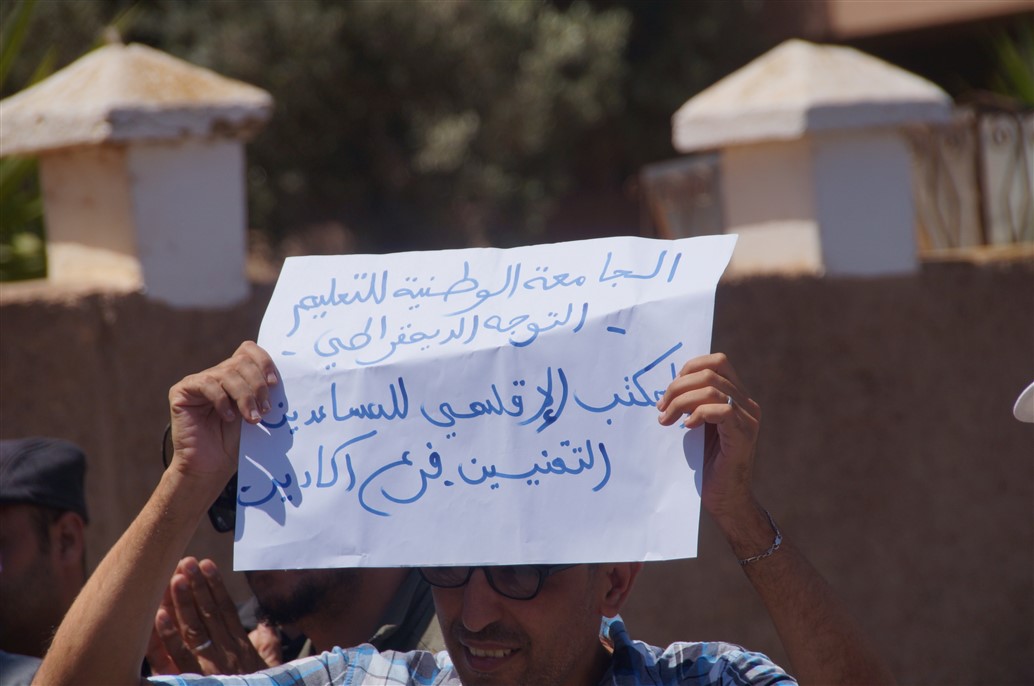 الجامعة الوطنية للتعليم
- التوجه الديمقراطي -
المكتب الإقليمي للمساعدين
التقنيين. فرع اكادير